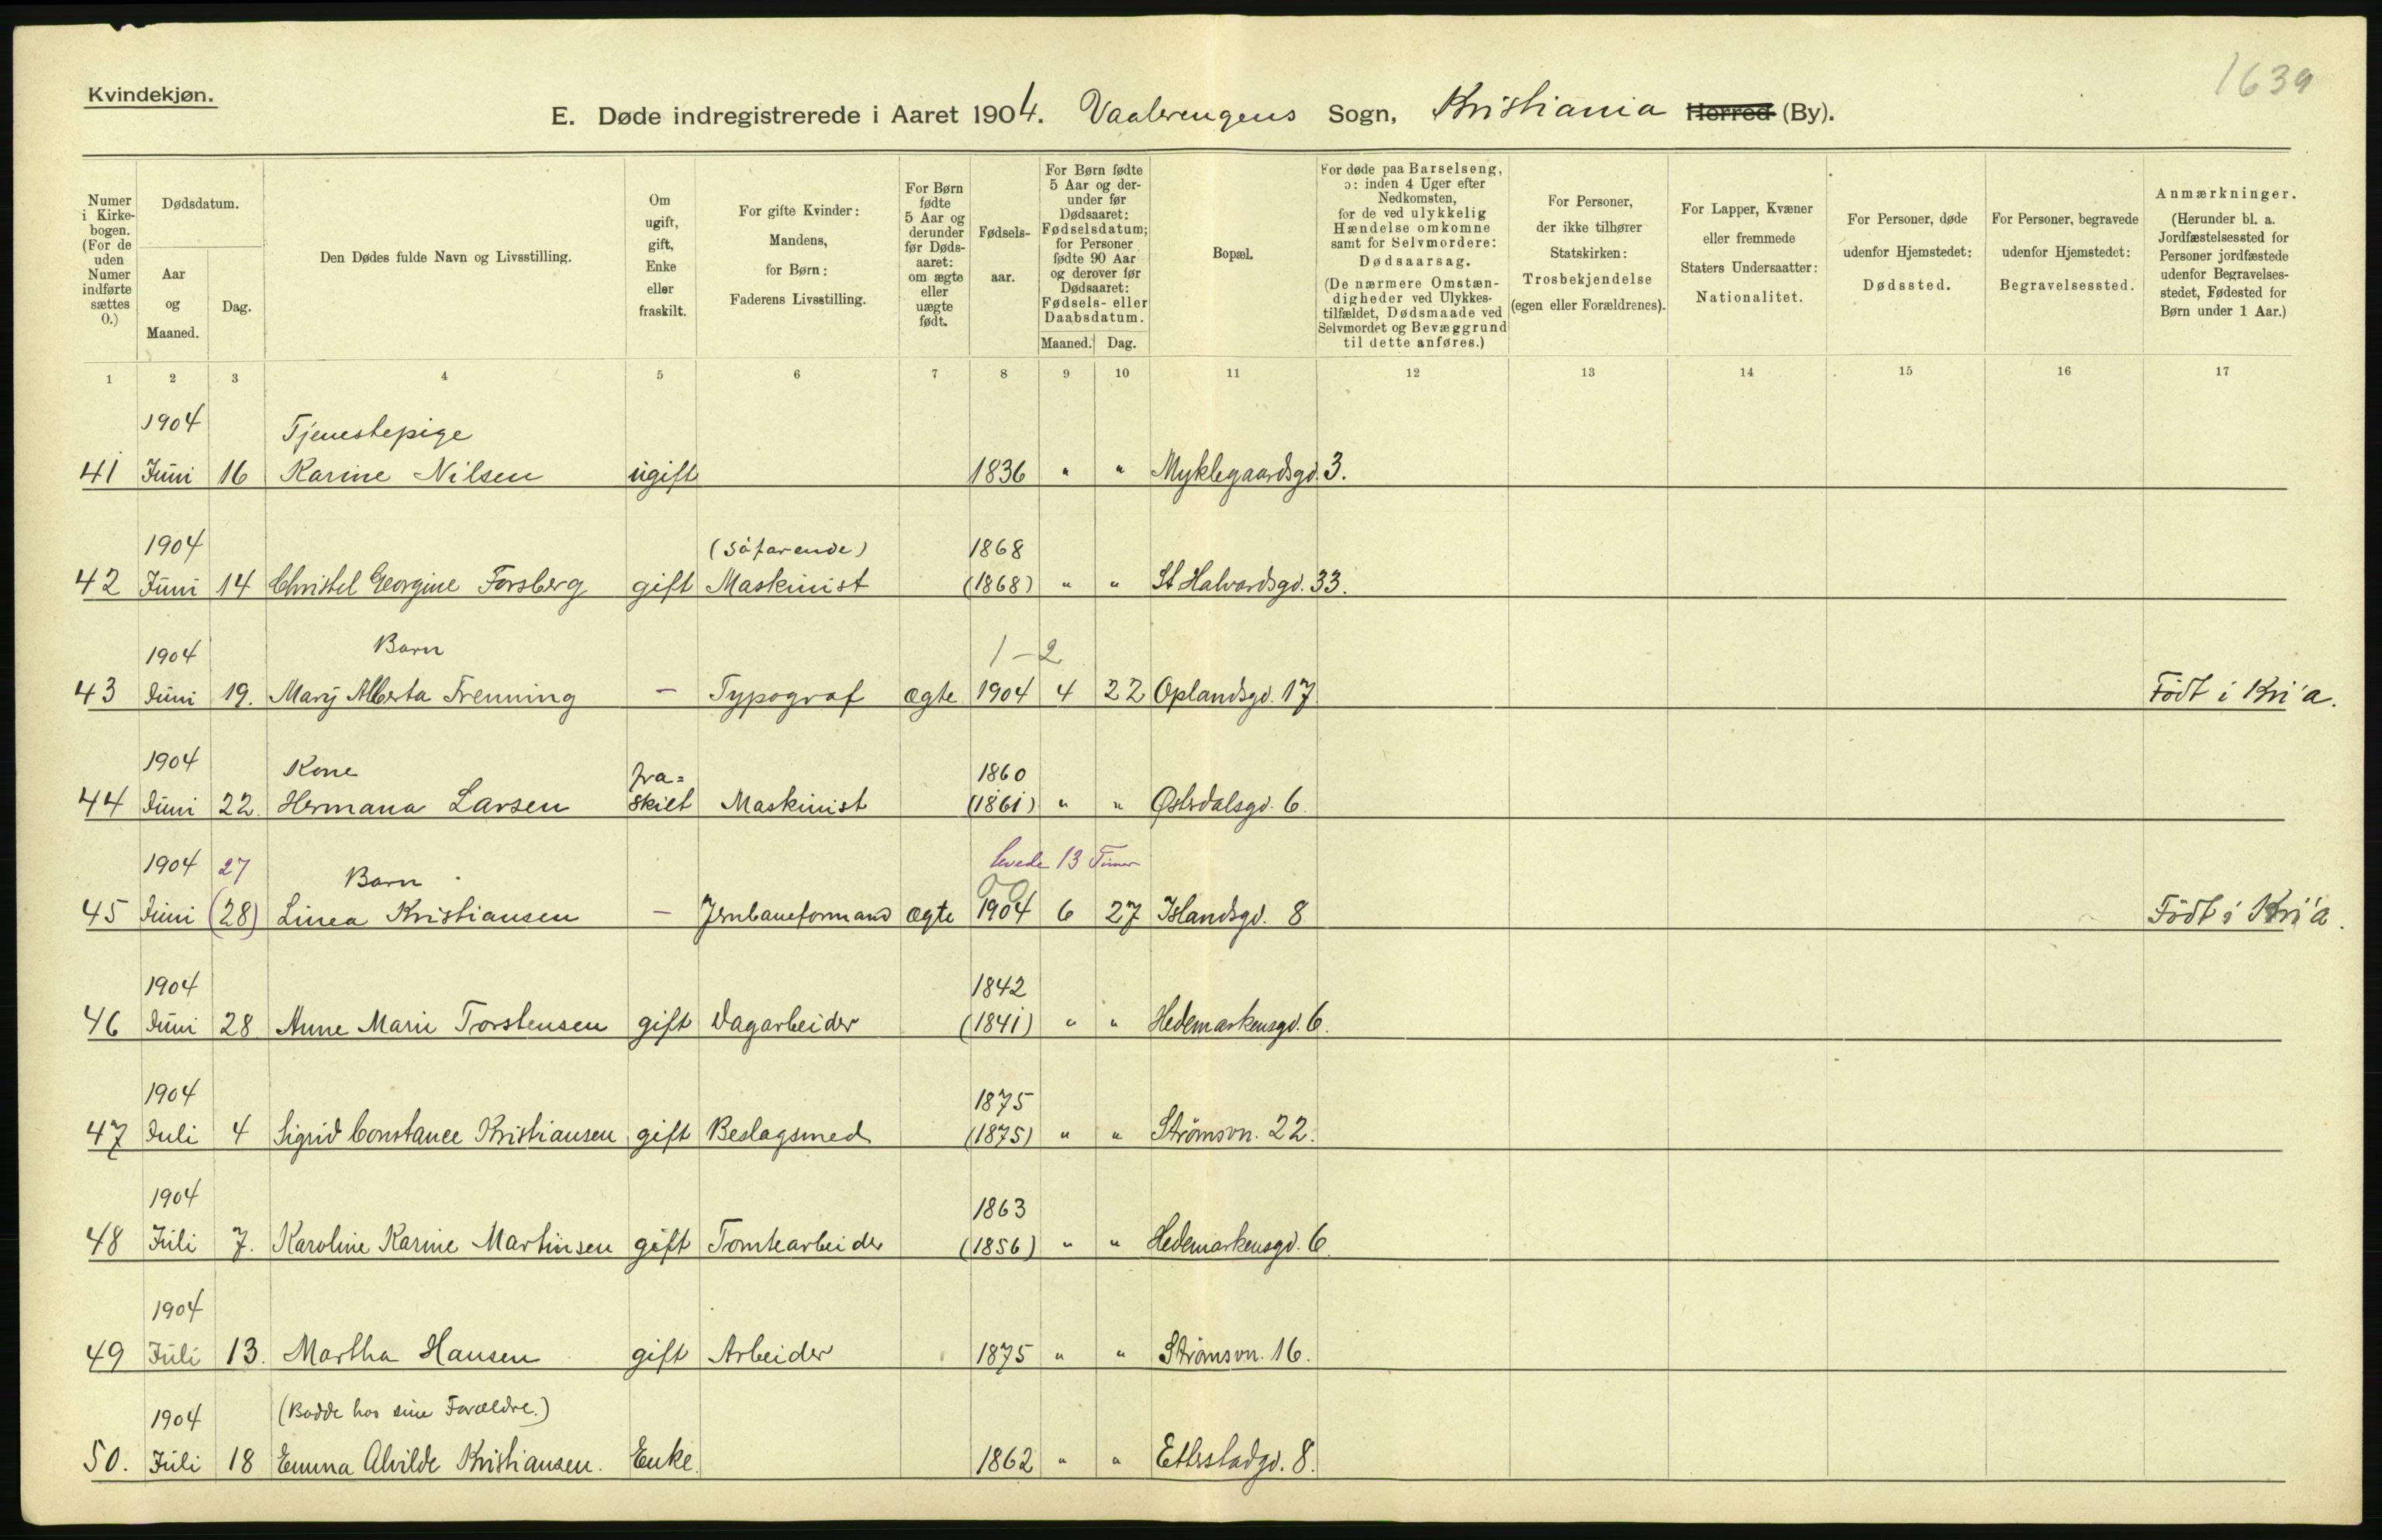 1639
Kvindekjøn.
E. Døde indregistrerede i Aaret 1904. Vaalerengens Sogn, Kristiania Herred (By).
Numer i Kirke-bogen. (For de uden Numer indførte sættes 0.)
Dødsdatum.
Aar og Maaned.
Dag.
Den Dødes fulde Navn og Livsstilling.
Om ugift, gift, Enke eller fraskilt.
For gifte Kvinder: Mandens, for Børn: Faderens Livsstilling.
For Børn fødte 5 Aar og derunder før Døds-aaret: om ægte eller uægte født.
Fødsels-aar.
For Børn fødte 5 Aar og der-under før Dødsaaret: Fødselsdatum; for Personer fødte 90 Aar og derover før Dødsaaret: Fødsels- eller Daabsdatum.
Maaned. Dag.
Bopæl.
For døde paa Barselseng, ɔ: inden 4 Uger efter Nedkomsten, for de ved ulykkelig Hændelse omkomne samt for Selvmordere: Dødsaarsag. (De nærmere Omstæn-digheder ved Ulykkes-tilfældet, Dødsmaade ved Selvmordet og Bevæggrund til dette anføres.)
For Personer, der ikke tilhører Statskirken: Trosbekjendelse (egen eller Forældrenes).
For Lapper, Kvæner eller fremmede Staters Undersaatter: Nationalitet.
For Personer, døde udenfor Hjemstedet: Dødssted.
For Personer, begravede udenfor Hjemstedet: Begravelsessted.
Anmærkninger. (Herunder bl. a. Jordfæstelsessted for Personer jordfæstede udenfor Begravelses-stedet, Fødested for Børn under 1 Aar.)
1 2 3 4 5 6 7 8 9 10 11 12 13 14 15 16 17
1904 Tjenestepige
41 Juni 16 Karine Nilsen ugift 1836 " " Myklegaardsgd. 3.
1904 (Söfarende) 1868
42 Juni 14 Christel Georgine Forsberg gift Maskinist (1868) " " St Halvardsgd. 33.
1904 Barn 1-2
43 Juni 19. Mary Alberta Frenning — Typograf ægte 1904 4 22 Oplandsgd. 17 Födt i Kri'a.
1904 Kone fra= 1860
44 Juni 22. Hermana Larsen skilt Maskinist (1861) " " Østerdalsgd. 6.
1904 27 Barn levede 13 Timer
45 Juni (28) Linea Kristiansen — Jernbaneformand ægte 1904 6 27 Islandsgd. 8 Födt i Kri'a.
1904 1842
46 Juni 28 Anne Marie Torstensen gift Dagarbeider (1841) " " Hedemarkensgd. 6.
1904 1875
47 Juli 4 Sigrid Constance Kristiansen gift Beslagsmed (1875) " " Strömsvn. 22.
1904 1863
48 Juli 7. Karoline Karine Martinsen gift Tomtearbeider (1856) " " Hedemarkensgd. 6
1904
49 Juli 13. Martha Hansen gift Arbeider 1875 " " Strömsvn. 16.
1904 (Bodde hos sine Forældre.)
50. Juli 18 Emma Alvilde Kristiansen. Enke. 1862 " " Etterstadgd. 8.